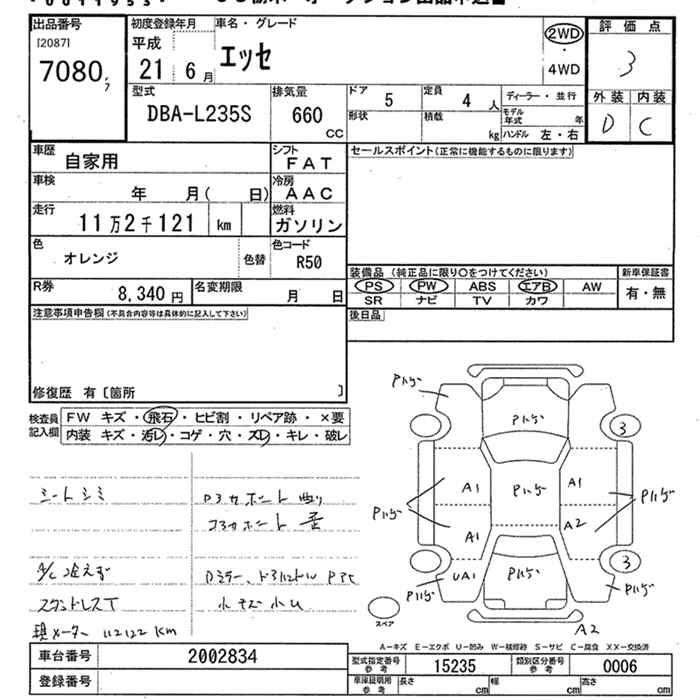 出品番号
[2087]
7080
初度登録年月
平成
21 6 月
車名・グレード
エッセ
2WD
・
4WD
評価点
3
外装 内装
D C
型式
DBA-L235S
排気量
660
CC
ドア
5
定員
4 人
ディーラー・並行
形状
積載
kg
モデル年式
年
ハンドル 左・右
車歴
自家用
シフト
FAT
車検
年 月( 日)
冷房
AAC
走行
11万2千121 km
燃料
ガソリン
色
オレンジ
色替
色コード
R50
R券
8,340 円
名変期限
月 日
セールスポイント(正常に機能するものに限ります)
装備品(純正品に限り〇をつけてください)
新車保証書
PS PW ABS エアB AW
有・無
SR ナビ TV カワ
後日品
注意事項申告欄(不具合内容等は具体的に記入して下さい)
修復歴 有〔箇所 〕
検査員記入欄
FW キズ・飛石・ヒビ割・リペア跡・×要
内装 キズ・汚レ・コゲ・穴・スレ・キレ・破レ
シートシミ
A/C冷えず
スタッドレスT
現メーター 112122 Km
小キズ小U
Pハゲ
Pハゲ
3
A1
Pハゲ
A1
Pハゲ
Pハゲ
A1
A2
UA1
Pハゲ
3
Pハゲ
Pハゲ
スペア
A2
A-キズ E-エクボ U-凹み W-補修跡 S-サビ C-腐食 XX-交換済
車台番号
2002834
型式指定番号
参考
15235
類別区分番号
参考
0006
登録番号
車庫証明用
参考
長さ
cm
幅
cm
高さ
cm